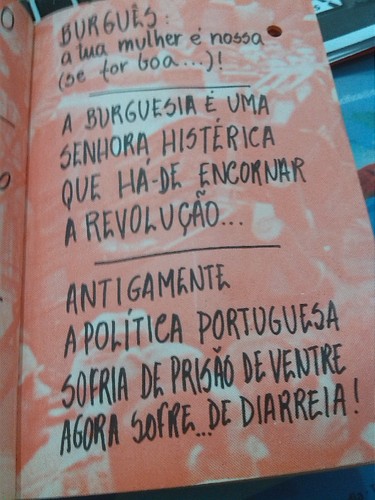 BURGUÊS:
a tua mulher é nossa
(se for boa...)!
A BURGUESIA É UMA
SENHORA HISTÉRICA
QUE HÁ-DE ENCORNAR
A REVOLUÇÃO...
ANTIGAMENTE
A POLÍTICA PORTUGUESA
SOFRIA DE PRISÃO DE VENTRE
AGORA SOFRE...DE DIARREIA!